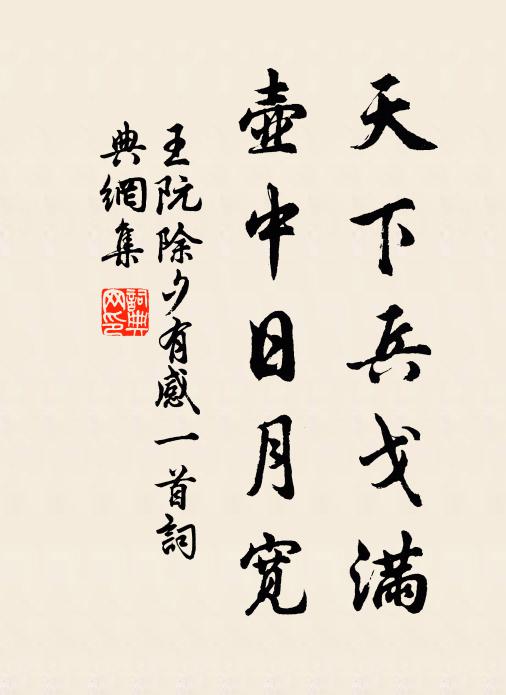 天下兵戈滿
壺中日月寛
王阮除夕有感一首詞
典網集
詞典
网印